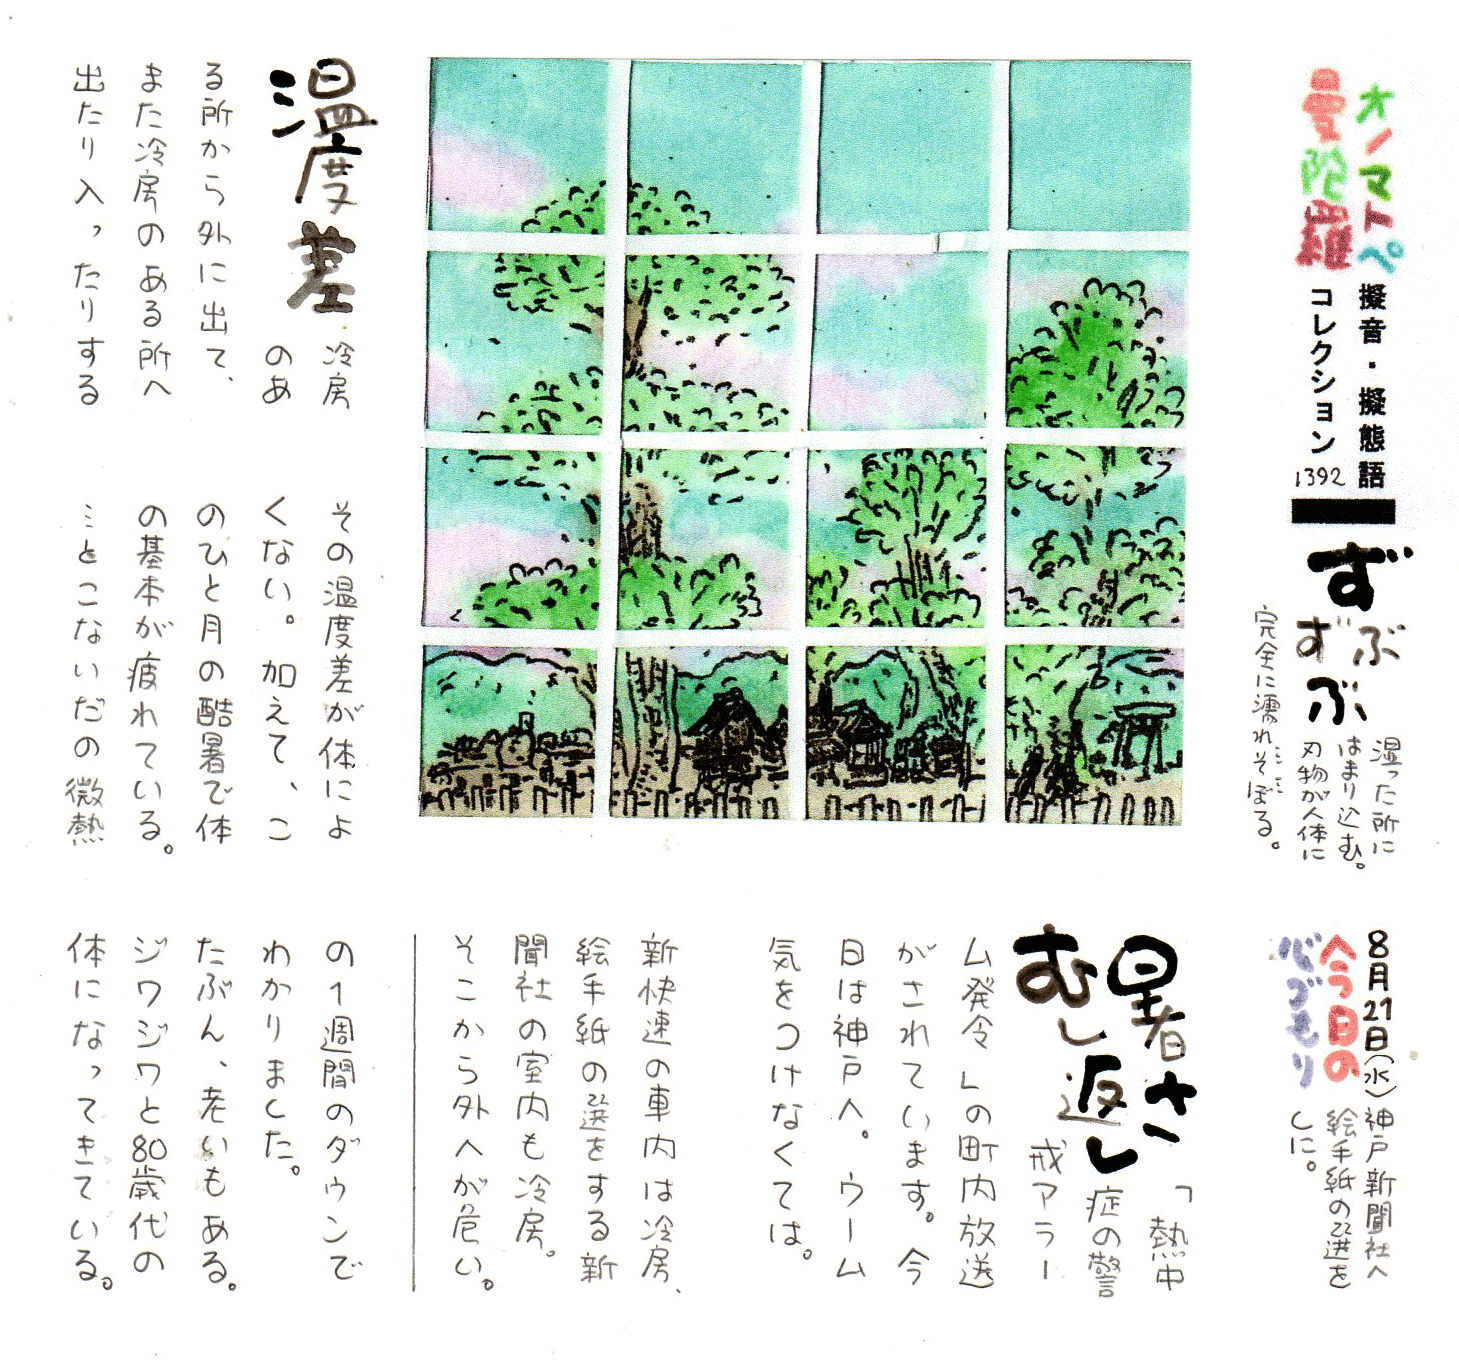 オノマトペ
曼陀羅
擬音・擬態語
コレクション
1392
ずぶ
ずぶ
湿った所に
はまり込む。
刃物が人体に
完全に濡れそぼる。
8月21日(水)
今日の
心づもり
神戸新聞社へ
絵手紙の選を
しに。
暑さ
むし返し
「熱中
症の警
戒アラー
ム発令」の町内放送
がされています。今
日は神戸へ。ウーム
気をつけなくては。
新快速の車内は冷房、
絵手紙の選をする新
聞社の室内も冷房。
そこから外へが危い。
温度差
冷房
のあ
る所から外に出て、
また冷房のある所へ
出たり入ったりする
その温度差が体によ
くない。加えて、こ
のひと月の酷暑で体
の基本が疲れている。
…とこないだの微熱
の1週間のダウンで
わかりました。
たぶん、老いもある。
ジワジワと80歳代の
体になってきている。